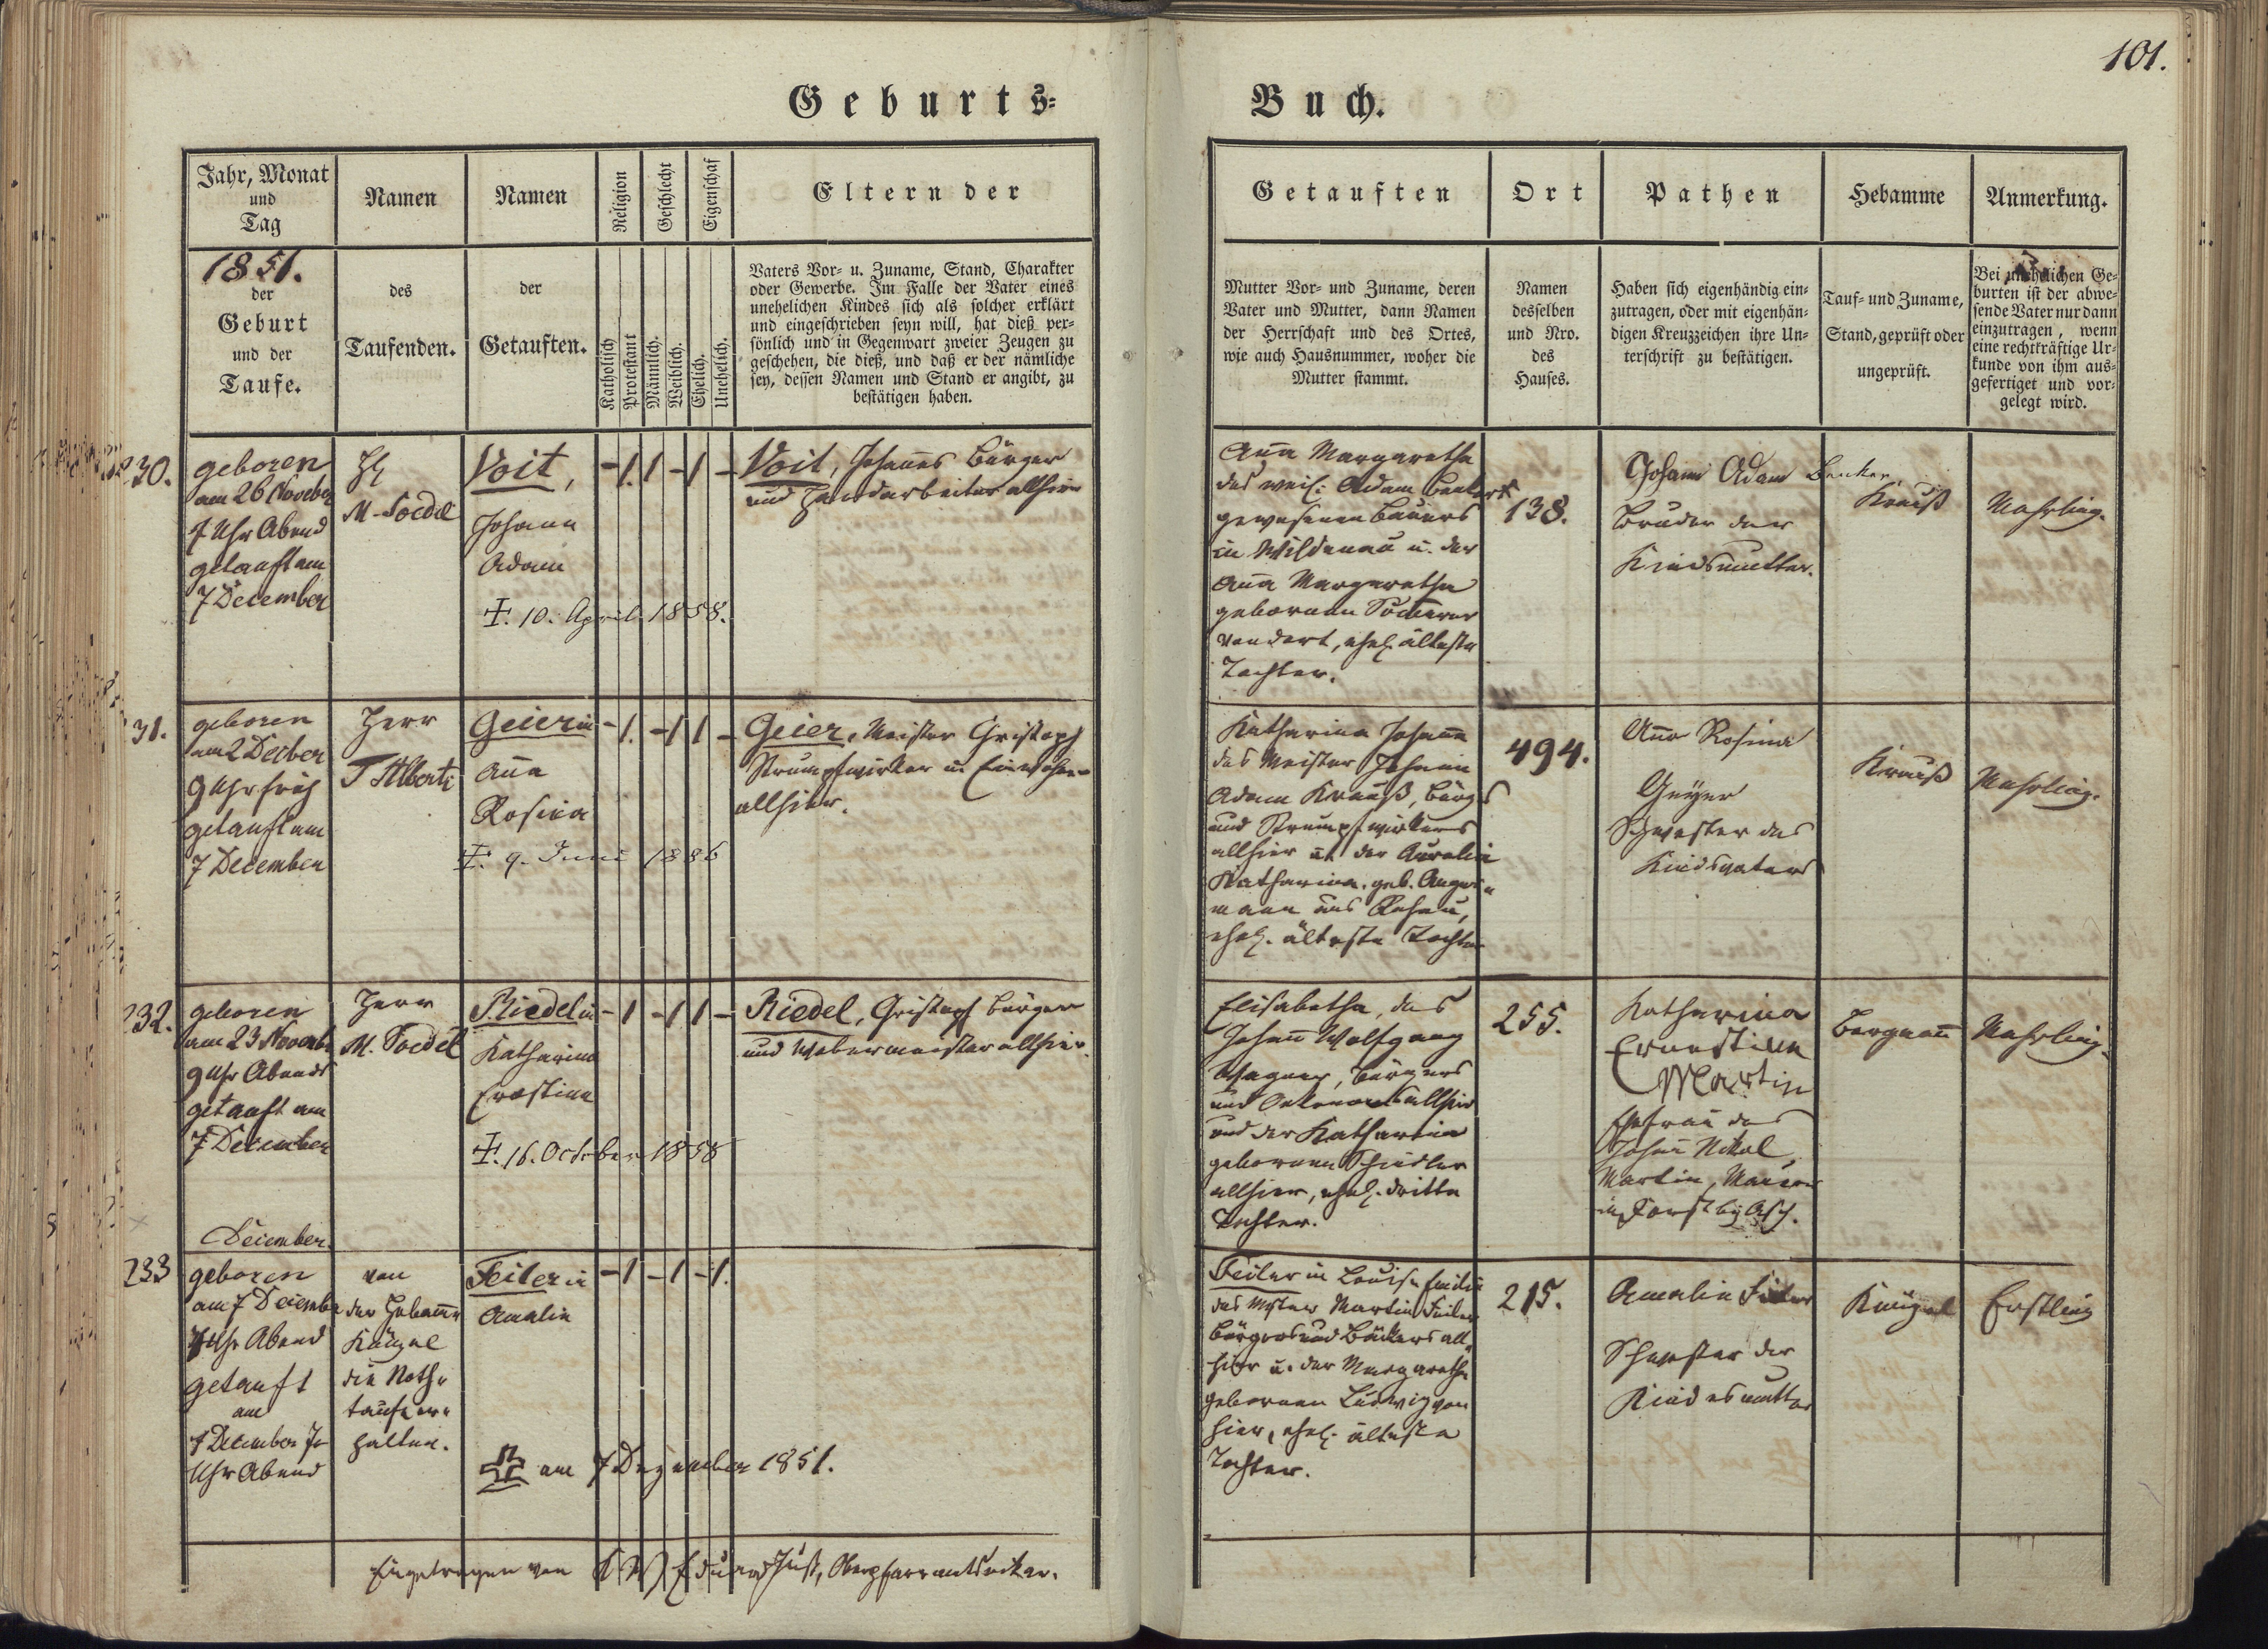 101.
Geburts-
Buch.
Jahr, Monat
und
Tag
Namen
Namen
Religion
Geschlecht
Eigenschaf
Eltern der
1851.
der
Geburt
und der
Taufe.
des
Taufenden.
der
Getauften.
Katholisch
Protestant
Männlich.
Weiblich.
Ehelich.
Unehelich.
Vaters Vor- u. Zuname, Stand, Charakter
oder Gewerbe. Im Falle der Vater eines
unehelichen Kindes sich als solcher erklärt
und eingeschrieben seyn will, hat dieß per-
sönlich und in Gegenwart zweier Zeugen zu
geschehen, die dieß, und daß er der nämliche
sey, dessen Namen und Stand er angibt, zu
bestätigen haben.
Getauften
Ort
Pathen
Hebamme
Anmerkung.
Mutter Vor- und Zuname, deren
Vater und Mutter, dann Namen
der Herrschaft und des Ortes,
wie auch Hausnummer, woher die
Mutter stammt.
Namen
desselben
und Nro.
des
Hauses.
Haben sich eigenhändig ein-
zutragen, oder mit eigenhän-
digen Kreuzzeichen ihre Un-
terschrift zu bestätigen.
Tauf- und Zuname,
Stand, geprüft oder
ungeprüft.
Bei unehelichen Ge-
burten ist der abwe-
sende Vater nur dann
einzutragen, wenn
eine rechtkräftige Ur-
kunde von ihm aus-
gefertiget und vor-
gelegt wird.
230.
geboren
am 26 November
7 Uhr Abend
getauft am
7 December
H
M. Soedel
Voit,
Johann
Adam
✝. 10. April 1858.
- 1. 1 - 1 -
Voit, Johannes Bürger
und Handarbeiter allhier
Anna Margaretha
des weil: Adam Benker
gewesenen Bauers
in Wildenau u. der
Anna Margaretha
gebornen
von dort, ehel. älteste
Tochter.
138.
Johann Adam Benker
Bruder der
Kindsmutter.
Krauß
Mehrling.
31.
geboren
am 2 Decber
9 Uhr früh
getauft am
7 December
Herr
T Alberti
Geierin
Anna
Rosina
✝. 9. Juni 1886
- 1. - 1 1 -
Geier, Meister Cristoph
Strumpfwirker u Einwohner
allhier.
Katharina Johanna
des Meister Johann
Adam Krauß, Bürgers
und Strumpfwirkers
allhier u. der
Katharina geb. Anger-
mann aus Rehau,
ehel. älteste Tochter
494.
Anna Rosina
Geyer
Schwester des
Kindsvaters
Krauß
Mehrling.
232.
geboren
am 23 Novemb
9 Uhr Abends
getauft am
7 December
Herr
M. Soedel
Riedelin
Katharina
Ernstine
✝. 16. October 1858
- 1 - 1 1 -
Riedel, Cristoph Bürger
und Webermeister allhier.
Elisabetha, des
Johann Wolfgang
Wagner, Bürgers
und Oekonoms allhier
und der Katharina
gebornen Schindler
allhier, ehel. dritte
Tochter.
255.
Katharina
Ernestine
Martin
Ehefrau des
Johann Nikol
Martin, Maurer
in Forst bei Asch.
Bergmann
Mehrling.
December.
233
geboren
am 7 December
7 Uhr Abend
getauft
am
7 December
Uhr Abend
von
der Hebamme
Künzel
die Noth-
taufe er-
halten.
Feilerin
Amalie
am 7 Dezember 1851.
- 1 - 1 - 1.
Feilerin Louise Emilie
des Mster Martin Feiler
Bürgers und Bäckers all-
hier u. der Margaretha
gebornen Ludwig von
hier, ehel. älteste
Tochter.
215.
Amalie Feiler
Schwester der
Kindesmutter
Künzel
Erstling
Eingetragen von Eduard Just, Oberpfarramtsvikar.